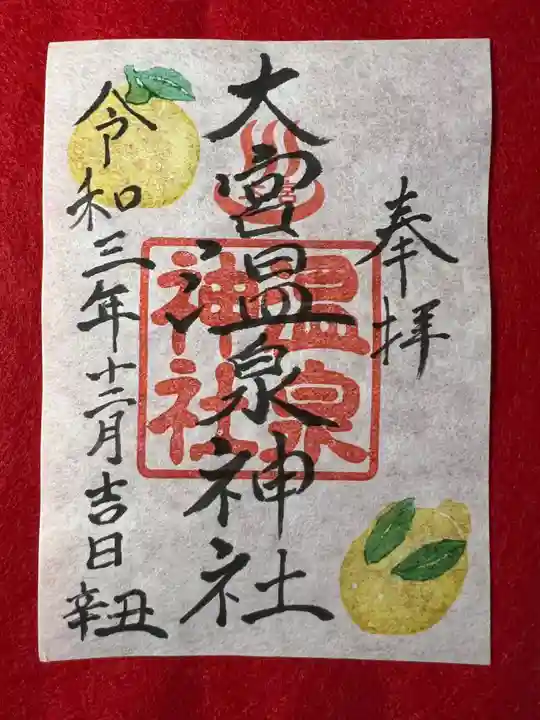 奉拝
大宮温泉神社
温泉
神社
令和三年十二月吉日
辛丑